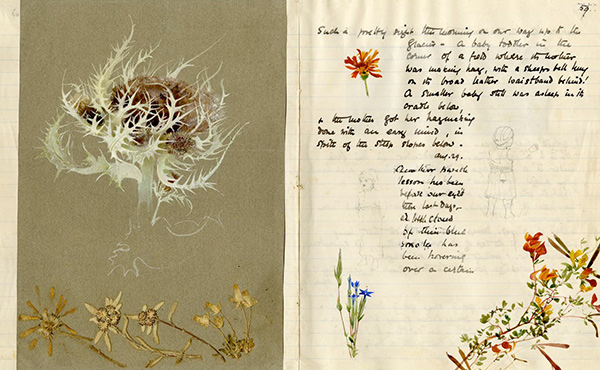 59.
Such a pretty sight this morning on our way up to the
Glacier - A baby toddler in the
corner of a field where its mother
was making hay, with a sheep's bell hung
on its broad leather waistband behind!
A smaller baby still was asleep in its
cradle below,
& the mother got her haymaking
done with an easy mind, in
spite of the steep slopes below -
Aug. 29.
Another parable
lesson has been
before our eyes
these last days,
a cloud
of thin blue
smoke has
been hovering
over a certain